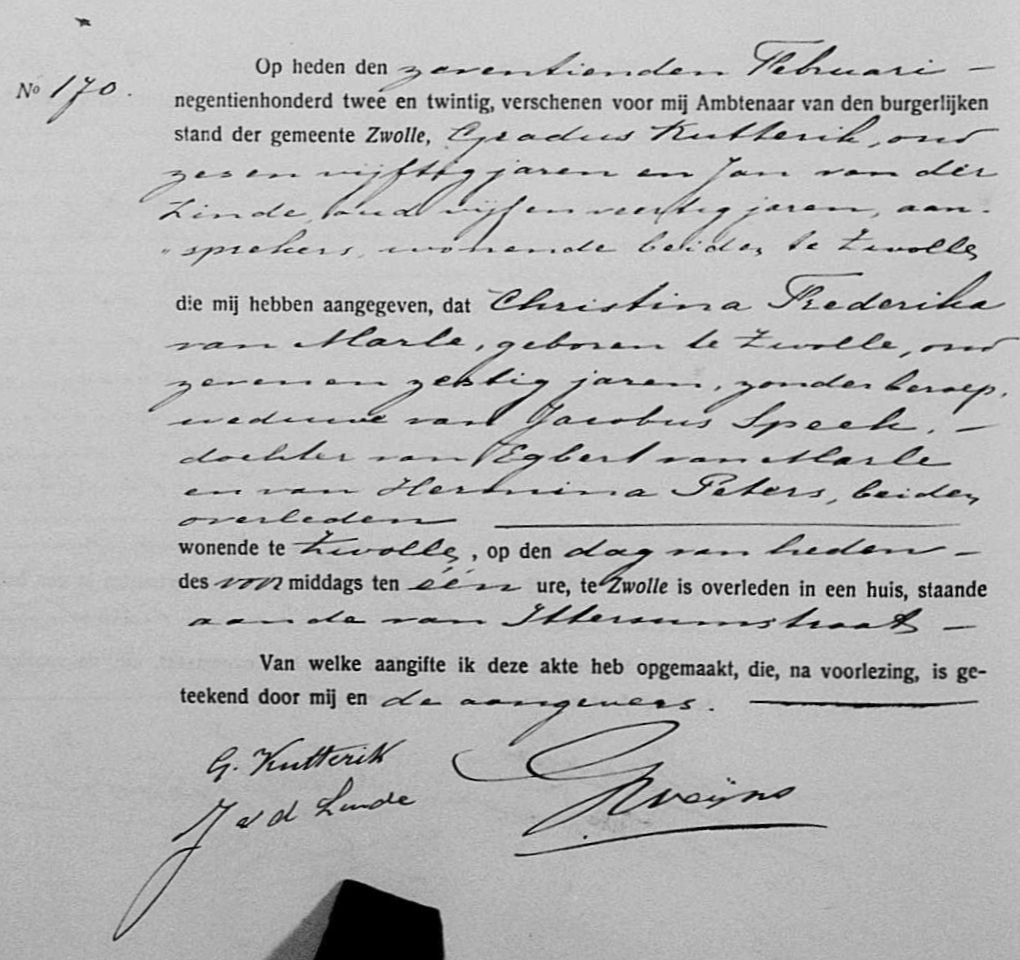 Nº 170.
Op heden den zeventienden Februari –
negentienhonderd twee en twintig, verschenen voor mij Ambtenaar van den burgerlijken
stand der gemeente Zwolle, Gradus Kutterik, oud
zes en vijftig jaren en Jan van der
Linde, oud vijf en veertig jaren, aan-
„sprekers, wonende beiden te Zwolle,
die mij hebben aangegeven, dat Christina Frederika
van Marle, geboren te Zwolle, oud
zeven en zestig jaren, zonder beroep,
weduwe van Jacobus Speek, –
dochter van Egbert van Marle
en van Hermina Peters, beiden
overleden
wonende te Zwolle, , op den dag van heden –
des voor middags ten één ure, te Zwolle is overleden in een huis, staande
aan de van Ittersumstraat –
Van welke aangifte ik deze akte heb opgemaakt, die, na voorlezing, is ge-
teekend door mij en de aangevers.
G. Kutterik
J v d Linde